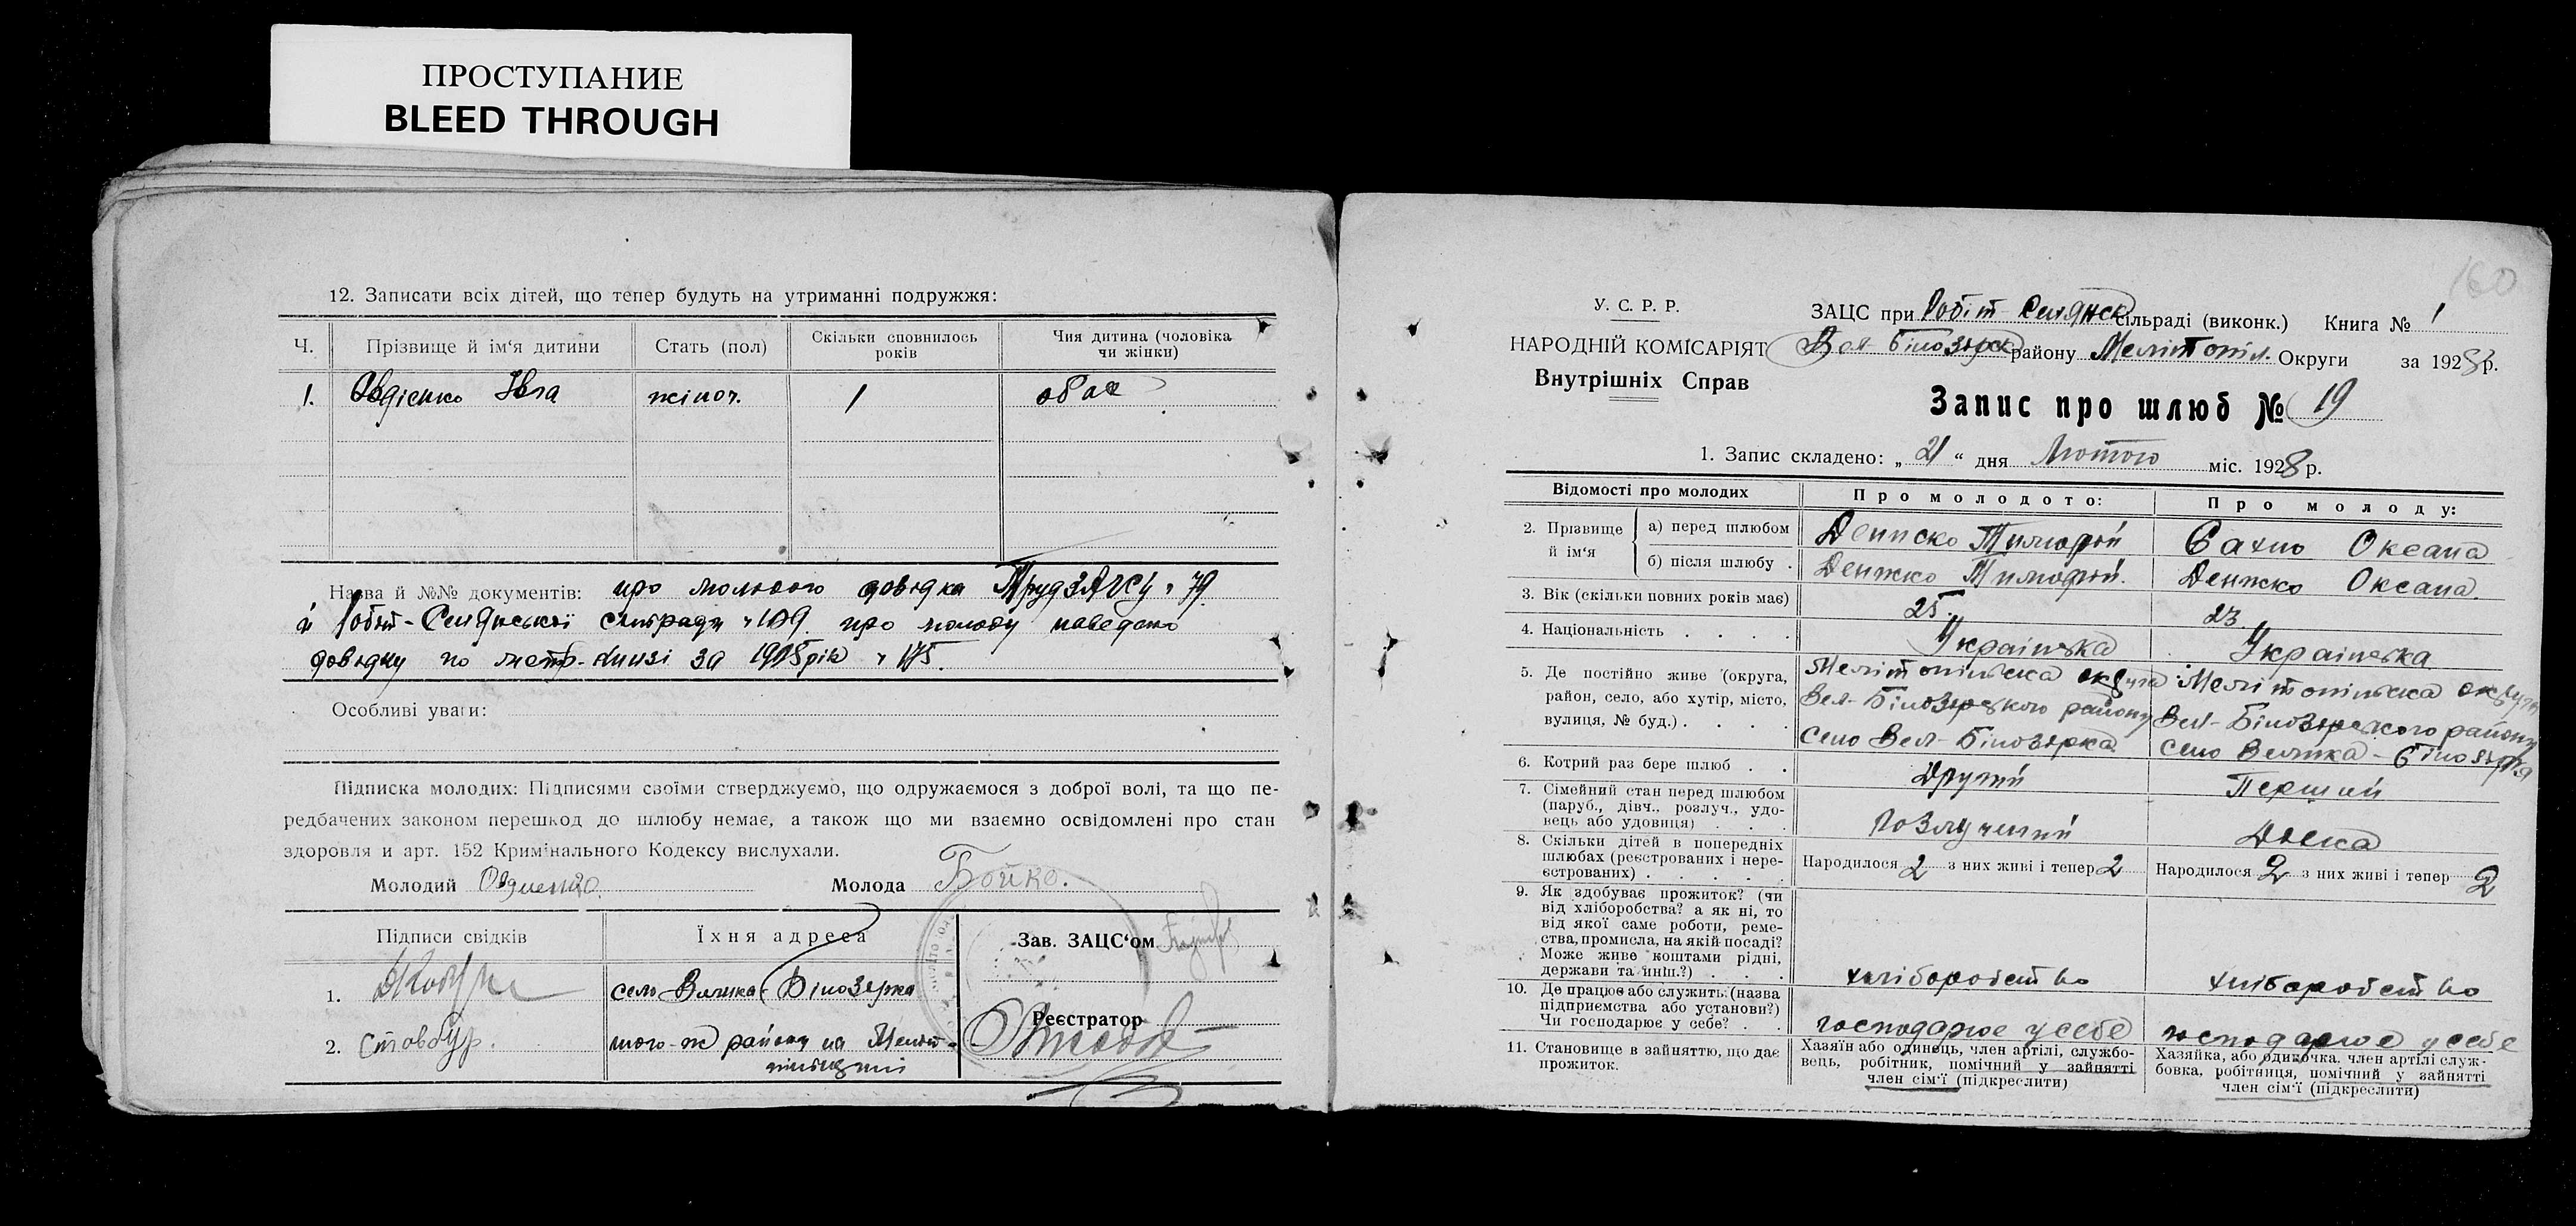 ПРОСТУПАНИЕ
BLEED THROUGH
12. Записати всіх дітей, що тепер будуть на утриманні подружжя:
Ч. Прізвище й ім'я дитини Стать (пол) Скільки сповнилось років Чия дитина (чоловіка чи жінки)
1. Овдієнко Ївга жіноч. 1 обое
Назва й №№ документів: про молодого довідка ЗАГСу 79
й Робіт-Селянської сільради 109 про молоду наведено
довідку по метр-книзі за рік 175.
Особливі уваги:
Підписка молодих: Підписями своїми стверджуємо, що одружаємося з доброї волі, та що пе-
редбачених законом перешкод до шлюбу немає, а також що ми взаємно освідомлені про стан
здоровля и арт. 152 Кримінального Кодексу вислухали.
Молодий Овдиенко Молода Бойко.
Підписи свідків Їхня адреса Зав. ЗАЦС'ом
1. село Велика-Білозерка
2. Стовбур. того-ж району на Меліто-
пільщині
Реєстратор
160
У. С. Р. Р.
НАРОДНІЙ КОМІСАРІЯТ
Внутрішніх Справ
ЗАЦС при Робіт-Селянск сільраді (виконк.) Книга № 1
Вел-Білозерск району Мелітопіл. Округи за 1928 р.
Запис про шлюб № 19
1. Запис складено: „21“ дня Лютого міс. 1928 р.
Відомості про молодих Про молодого: Про молоду:
2. Прізвище й ім'я
а) перед шлюбом Тимофій Сахно Оксана
б) після шлюбу Тимофій. Оксана.
3. Вік (скільки повних років має) 25. 23.
4. Національність Українська Українська
5. Де постійно живе (округа,
район, село, або хутір, місто,
вулиця, № буд.)
Мелітопільска округа
Вел-Білозерского району
село Вел-Білозерка
Мелітопільска округа
Вел-Білозерского району
село Велика-Білозерка
6. Котрий раз бере шлюб Другий Перший
7. Сімейний стан перед шлюбом
(паруб., дівч., розлуч., удо-
вець або удовиця)
Розлучений
8. Скільки дітей в попередніх
шлюбах (реєстрованих і нере-
єстрованих)
Народилося 2 з них живі і тепер 2 Народилося 2 з них живі і тепер 2
9. Як здобуває прожиток? (чи
від хліборобства? а як ні, то
від якої саме роботи, реме-
ства, промисла, на якій посаді?
Може живе коштами рідні,
держави та инш.?)
хліборобство хліборобство
10. Де працює або служить: (назва
підприємства або установи?)
Чи господарює у себе?
господарює у себе господарює у себе
11. Становище в зайняттю, що дає
прожиток.
Хазяїн або одинець, член артілі, службо-
вець, робітник, помічний у зайнятті
член сім'ї (підкреслити)
Хазяйка, або одиночка, член артілі служ-
бовка, робітниця, помічний у зайнятті
член сім'ї (підкреслити)